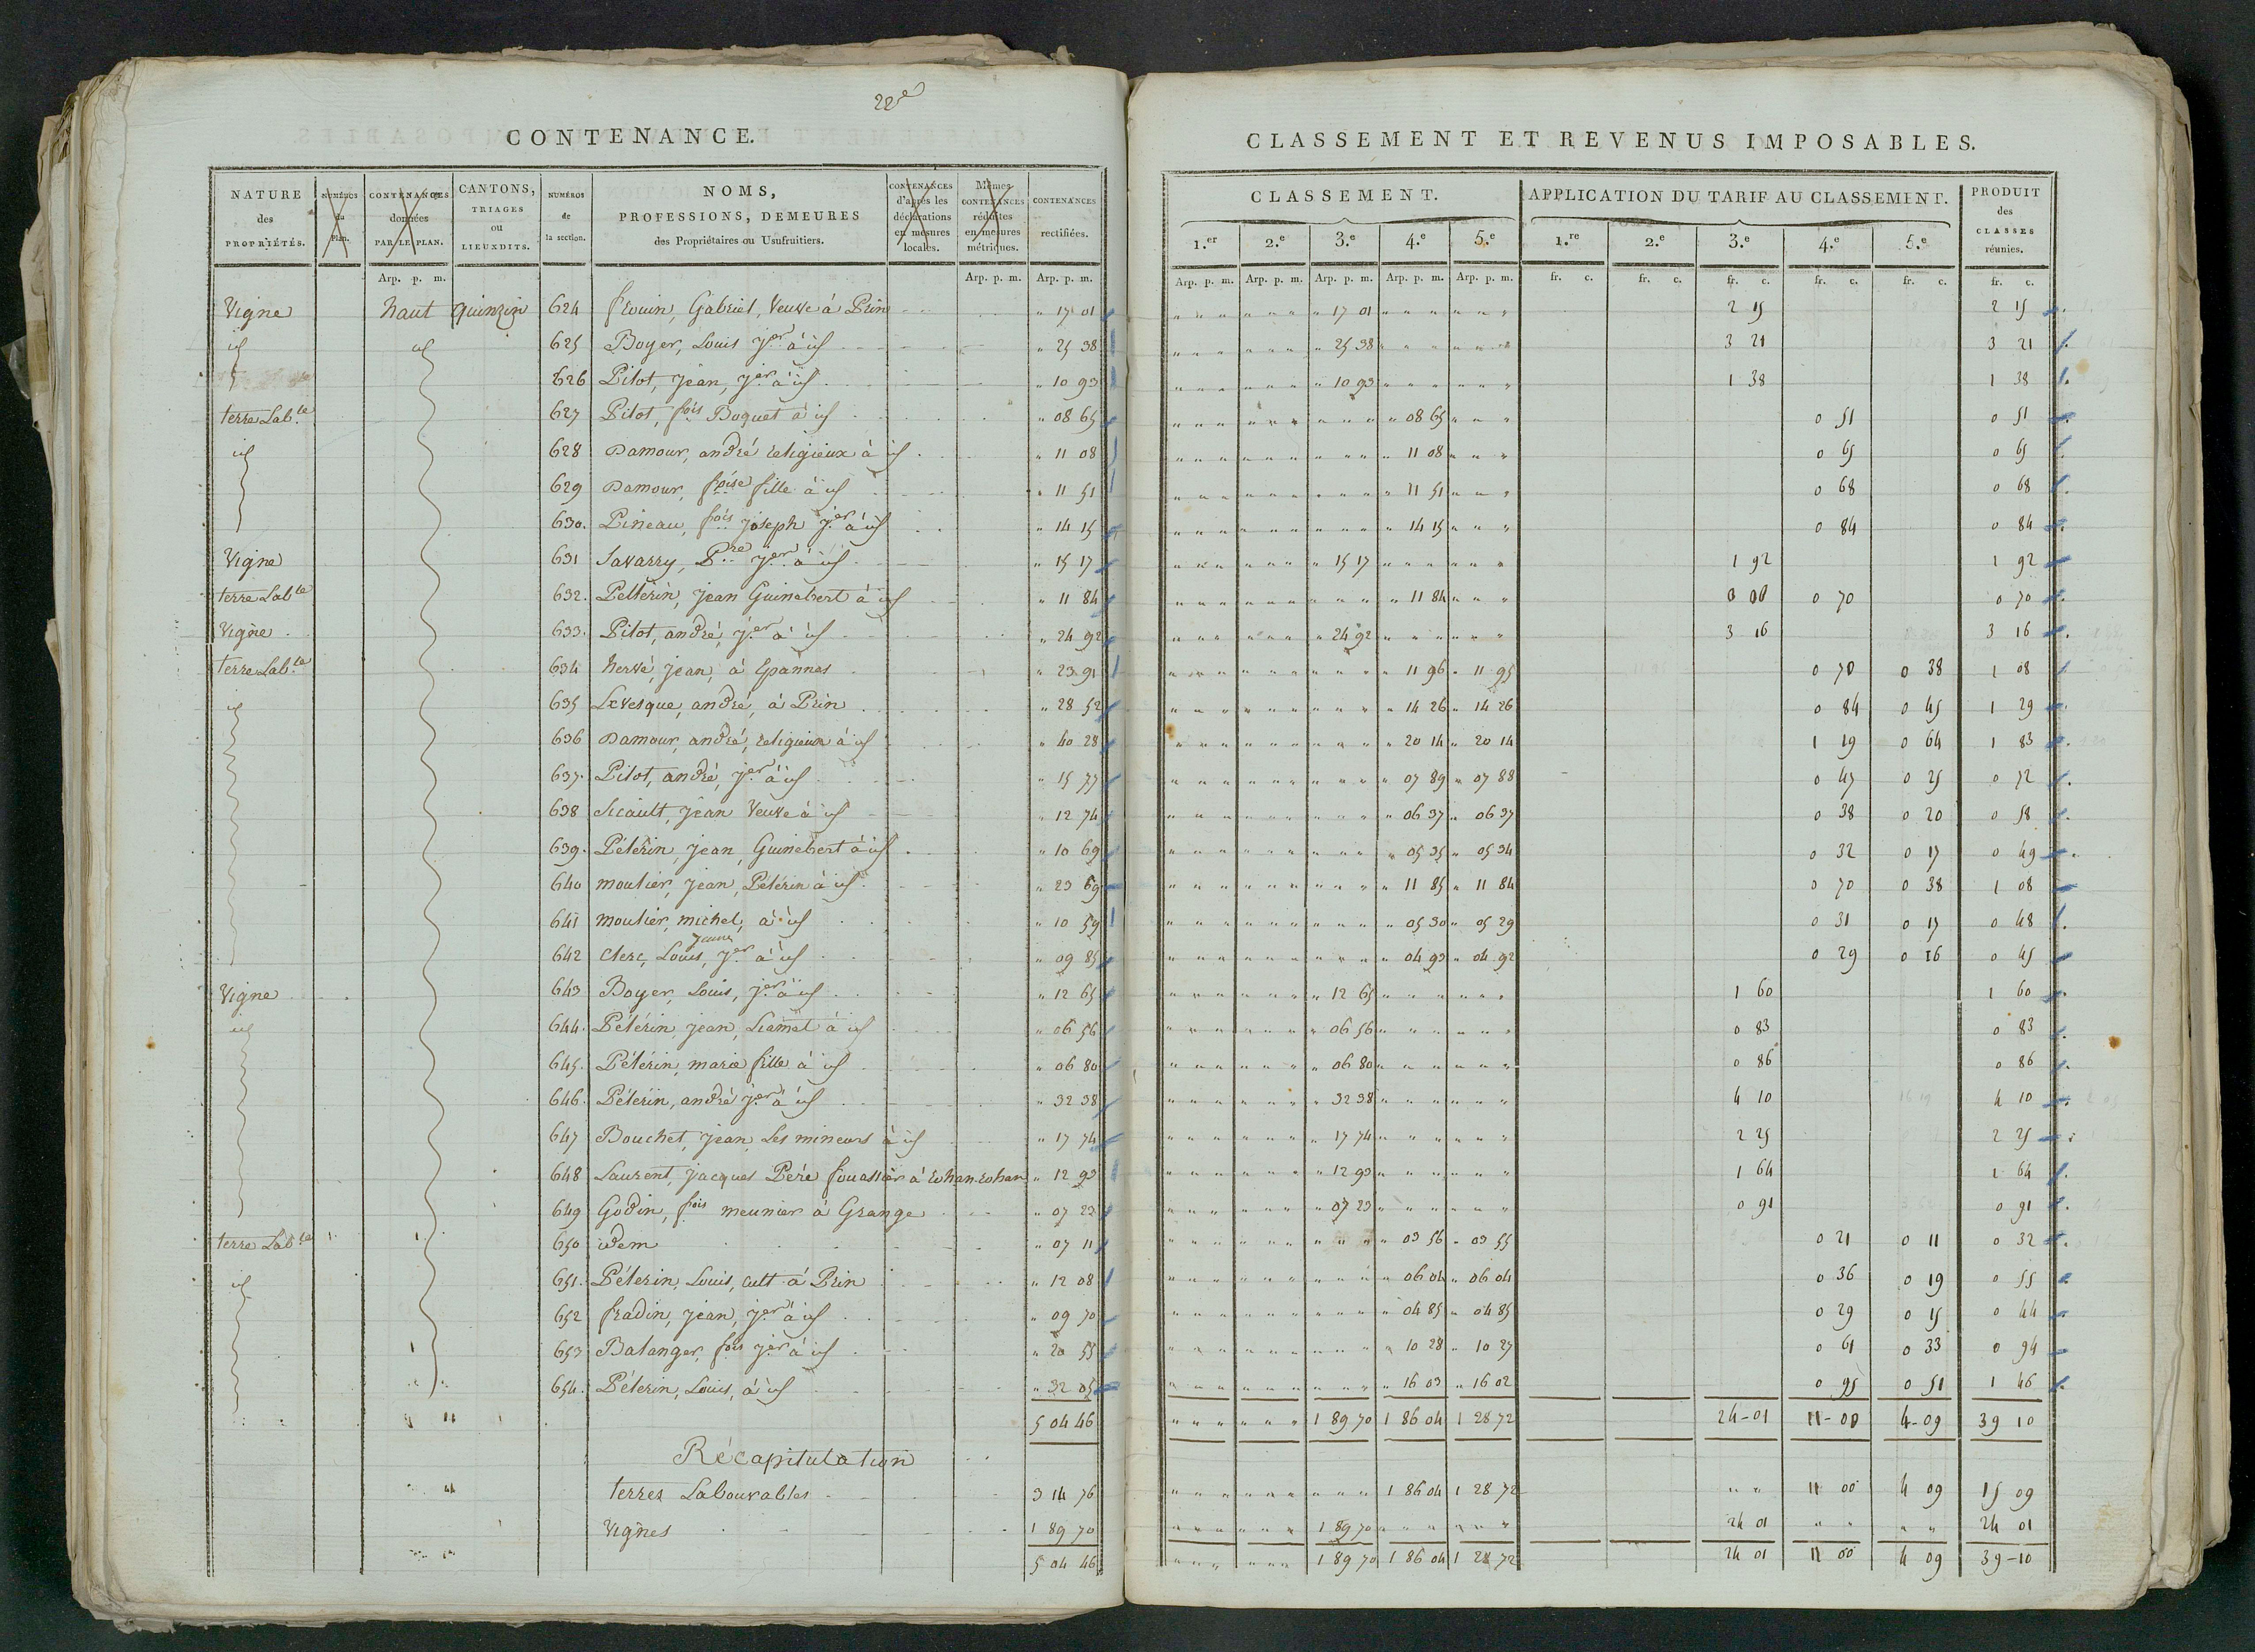 22e
CONTENANCE.
NATURE des PROPRIÉTÉS. NUMÉROS du Plan. CONTENANCES données PAR LE PLAN. CANTONS, TRIAGES ou LIEUXDITS. NUMÉROS de la section. NOMS, PROFESSIONS, DEMEURES des Propriétaires ou Usufruitiers. CONTENANCES d'après les déclarations en mesures locales. Mêmes CONTENANCES réduites en mesures métriques. CONTENANCES rectifiées.
Arp. p. m. Arp. p. m. Arp. p. m.
Vigne haut quinzin 624 frouin, Gabriel, Veuve à Prin " 17 01
id id 625 Boyer, Louis jer à id " 25 38
626 Pitot, jean, jer à id " 10 93
terre Lable 627 Pitot, fois Boquet à id " 08 65
id 628 Damour, andré religieux à id " 11 08
629 Damour, foise fille à id " 11 51
630. Pineau, fois joseph jer à id " 14 15
Vigne 631 Savarry, Pre jer à id " 15 17
terre Lable 632. Pellerin, jean Guinebert à id " 11 84
Vigne 633. Pitot, andré, jer à id " 24 92
terre Lable 634 hervé, jean, à Epannes " 23 91
id 635 Levesque, andré, à Prin " 28 52
636 Damour, andré, religieux à id " 40 28
637. Pitot, andré, jer à id " 15 77
638 Sicault, jean Veuve à id " 12 74
639. Pélérin, jean, Guinebert à id " 10 69
640 moulier, jean, Pélérin à id " 23 69
641 moulier, michel, à id " 10 59
jeune
642 Clerc, Louis, jer à id " 09 85
Vigne 643 Boyer, Louis, jer à id " 12 65
id 644. Pélérin, jean, Liamet à id " 06 56
645. Pélérin, marie fille à id " 06 80
646. Pélérin, andré jer à id " 32 38
647 Bouchet, jean, Les mineurs à id " 17 74
648 Laurent, jacques Père fouassier à rohan-rohan " 12 93
649 Godin, fois meunier à Grange " 07 23
terre Lable 650 idem " 07 11
id 651. Pélerin, Louis, cult à Prin " 12 08
652 fradin, jean, jer à id " 09 70
653 Balanger, fois jer à id " 20 55
654. Pélerin, Louis, à id " 32 05
5 04 46
Récapitulation
terres Labourables 3 14 76
Vignes 1 89 70
5 04 46
CLASSEMENT ET REVENUS IMPOSABLES.
CLASSEMENT. APPLICATION DU TARIF AU CLASSEMENT. PRODUIT des CLASSES réunies.
1.er 2.e 3.e 4.e 5.e 1.re 2.e 3.e 4.e 5.e
Arp. p. m. Arp. p. m. Arp. p. m. Arp. p. m. Arp. p. m. fr. c. fr. c. fr. c. fr. c. fr. c. fr. c.
" 17 01 2 15 2 15
" 25 38 3 21 3 21
" 10 93 1 38 1 38
" 08 65 0 51 0 51
" 11 08 0 65 0 65
" 11 51 0 68 0 68
" 14 15 0 84 0 84
" 15 17 1 92 1 92
" 11 84 0 00 0 70 0 70
" 24 92 3 16 3 16
" 11 96 " 11 95 0 70 0 38 1 08
" 14 26 " 14 26 0 84 0 45 1 29
" 20 14 " 20 14 1 19 0 64 1 83
" 07 89 " 07 88 0 47 0 25 0 72
" 06 37 " 06 37 0 38 0 20 0 58
" 05 35 " 05 34 0 32 0 17 0 49
" 11 85 " 11 84 0 70 0 38 1 08
" 05 30 " 05 29 0 31 0 17 0 48
" 04 93 " 04 92 0 29 0 16 0 45
" 12 65 1 60 1 60
" 06 56 0 83 0 83
" 06 80 0 86 0 86
" 32 38 4 10 4 10
" 17 74 2 25 2 25
" 12 93 1 64 1 64
" 07 23 0 91 0 91
" 03 56 " 03 55 0 21 0 11 0 32
" 06 04 " 06 04 0 36 0 19 0 55
" 04 85 " 04 85 0 29 0 15 0 44
" 10 28 " 10 27 0 61 0 33 0 94
" 16 03 " 16 02 0 95 0 51 1 46
1 89 70 1 86 04 1 28 72 24-01 11-00 4-09 39 10
1 86 04 1 28 72 " " 11 00 4 09 15 09
1 89 70 24 01 " " " " 24 01
1 89 70 1 86 04 1 28 72 24 01 11 00 4 09 39-10